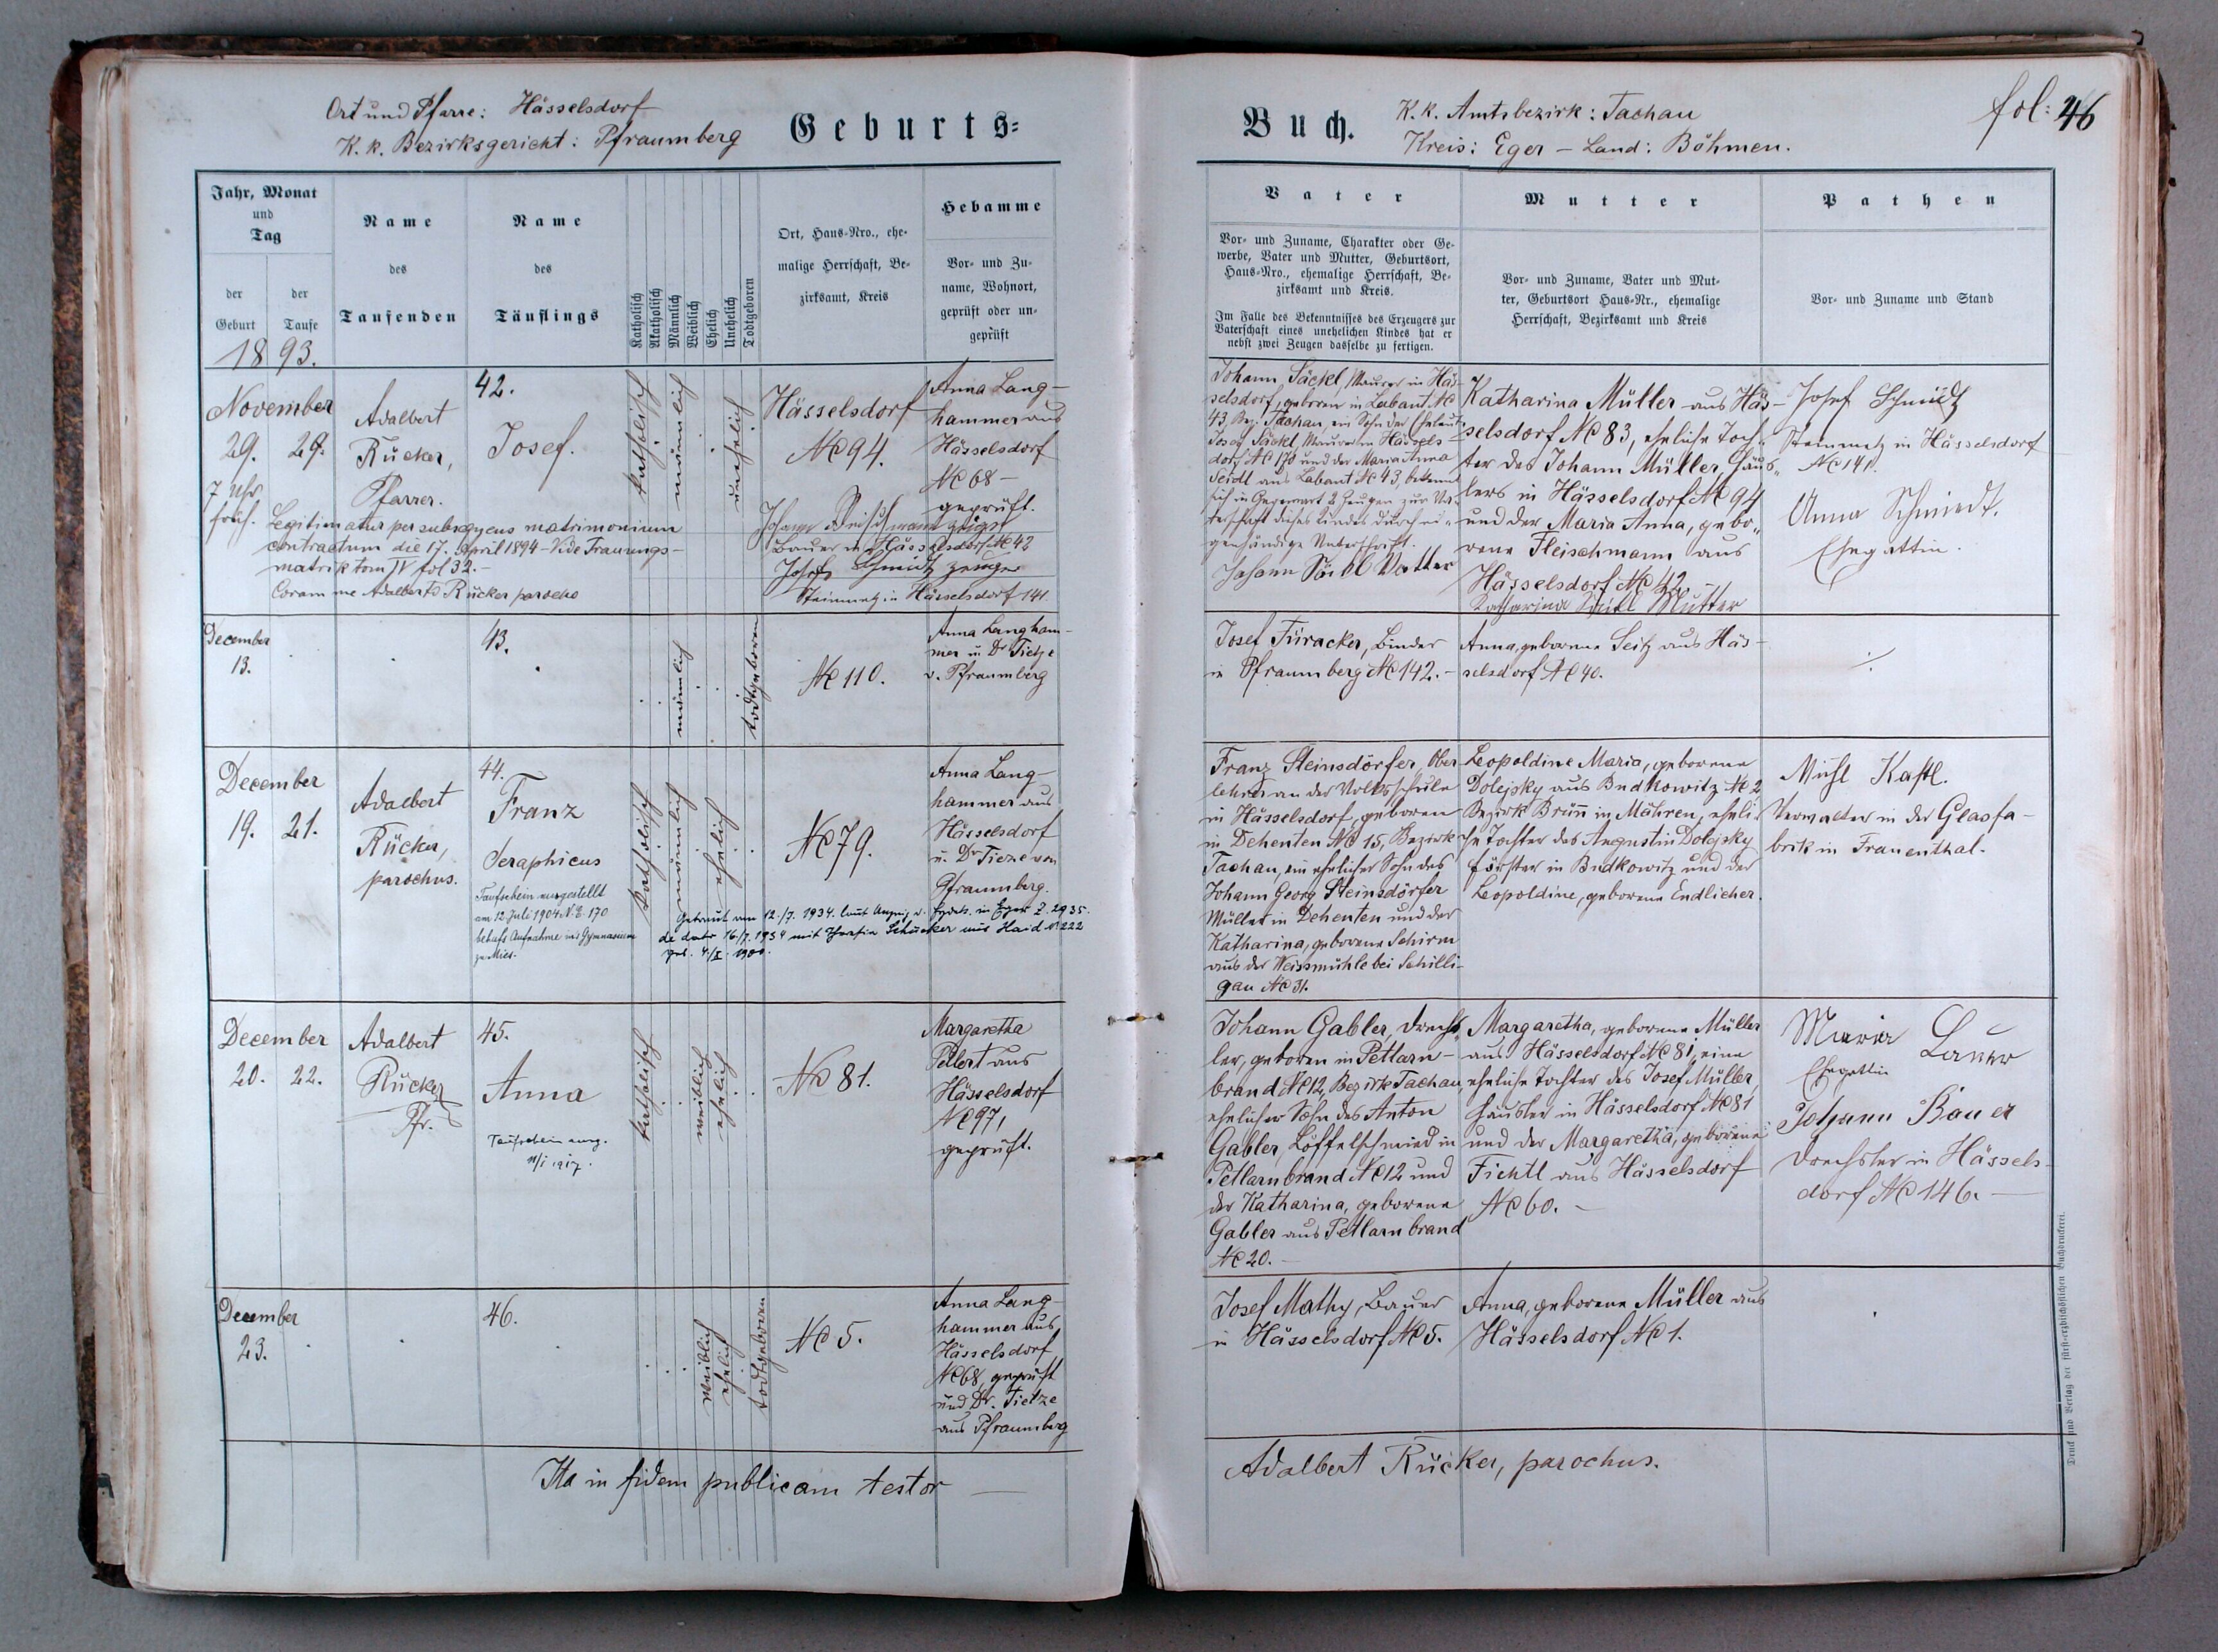 Ort und Pfarre: Hässelsdorf
K. k. Bezirksgericht: Pfraumberg
Geburts=
Jahr, Monat
und
Tag
der
Geburt
der
Taufe
Name
des
Taufenden
Name
des
Täuflings
Katholisch
Akatholisch
Männlich
Weiblich
Ehelich
Unehelich
Todtgeboren
Ort, Haus-Nro., ehe-
malige Herrschaft, Be-
zirksamt, Kreis
Hebamme
Vor- und Zu-
name, Wohnort,
geprüft oder un-
geprüft
1893.
November
29. 29.
7 Uhr
früh.
Adalbert
Rücker,
Pfarrer.
42.
Josef.
katholisch
männlich
unehelich
Hässelsdorf
No 94.
Anna Lang-
hammer aus
Hässelsdorf
No 68 -
geprüft.
Legitimatur per subsequens matrimonium
contractum die 17. April 1894 - Vide Trauungs-
matrik tom IV fol 32. -
Coram me Adalberto Rücker parocho
Johann
Bauer in Hässelsdorf No 42
Josef Schmidt zeuge
Steinmetz in Hässelsdorf 141.
December
13.
43.
männlich
todtgeboren
No 110.
Anna Langham-
mer u. Dr Tietze
v. Pfraumberg
December
19. 21.
Adalbert
Rücker,
parochus.
44.
Franz
Seraphicus
Taufschein ausgestellt
am 12. Juli 1904 N. E. 170
behufs Aufnahme ins Gymnasium
zu Mies.
katholisch
männlich
ehelich
No 79.
Anna Lang-
hammer aus
Hässelsdorf
u. Dr Tietze von
Pfraumberg.
Getraut am 12./7. 1934. laut Anzeige d. in Eger Z. 2935.
de dato 16/7. 1934 mit Schücker aus Haid No 222
geb. 4./X. 1900.
December
20. 22.
Adalbert
Rücker
Pfr.
45.
Anna
Taufschein ausg.
11/1 1917.
katholisch
weiblich
ehelich
No 81.
Margaretha
Pellert aus
Hässelsdorf
No 97,
geprüft.
December
23.
46.
weiblich
ehelich
todtgeboren
No 5.
Anna Lang-
hammer aus
Hässelsdorf
No 68, geprüft
und Dr. Tietze
aus Pfraumberg
Ita in fidem publicam testor
Buch.
K. k. Amtsbezirk: Tachau
Kreis: Eger - Land: Böhmen.
fol: 46
Vater
Vor- und Zuname, Charakter oder Ge-
werbe, Vater und Mutter, Geburtsort,
Haus-Nro., ehemalige Herrschaft, Be-
zirksamt und Kreis.
Im Falle des Bekenntnisses des Erzeugers zur
Vaterschaft eines unehelichen Kindes hat er
nebst zwei Zeugen dasselbe zu fertigen.
Mutter
Vor- und Zuname, Vater und Mut-
ter, Geburtsort Haus-Nr., ehemalige
Herrschaft, Bezirksamt und Kreis
Pathen
Vor- und Zuname und Stand
Johann Säckl, Maurer in Häs-
selsdorf, geboren in Labant No
43, Bez. Tachau, ein Sohn der Eheleute
Josef Säckl, Maurer in Hässels-
dorf No 170 und der Maria Anna
Seidl aus Labant No 43, bekennt
sich in Gegenwart 2 Zeugen zur Va-
terschaft dieses Kindes durch ei-
genhändige Unterschrift.
Johann Vatter
Katharina Müller aus Häs-
selsdorf No 83, eheliche Toch-
ter des Johann Müller, Häus-
lers in Hässelsdorf No 94
und der Maria Anna, gebo-
rene Fleischmann aus
Hässelsdorf No 42. -
Katharina Mutter
Josef Schmidt
Steinmetz in Hässelsdorf
No 141.
Anna Schmiedt.
Ehegattin.
Josef Füracker, Binder
in Pfraumberg No 142. -
Anna, geborene Seitz aus Häs-
selsdorf No 40.
Franz Steinsdörfer, Ober-
lehrer an der Volksschule
in Hässelsdorf, geboren
in Dehenten No 15, Bezirk
Tachau, ein ehelicher Sohn des
Johann Georg Steinsdörfer
Müller in Dehenten und der
Katharina, geborene Schirm
aus der Weissmühle bei Schilli-
gau No 31.
Leopoldine Maria, geborene
Dolejsky aus Budkowitz No 2
Bezirk Brünn in Mähren, eheli-
che Tochter des Augustin Dolejsky
Förster in Budkowitz und der
Leopoldine, geborene Endlicher.
Kastl.
Verwalter in der Glasfa-
brik in Frauenthal.
Johann Gabler, Drechs-
ler, geboren in Petlarn-
brand No 12, Bezirk Tachau,
ehelicher Sohn des Anton
Gabler, Löffelschmied in
Petlarnbrand No 12 und
der Katharina, geborene
Gabler aus Petlarnbrand
No 20. -
Margaretha, geborene Müller
aus Hässelsdorf No 81, eine
eheliche Tochter des Josef Müller,
Häusler in Hässelsdorf No 81
und der Margaretha, geborene
Fichtl aus Hässelsdorf
No 60. -
Maria
Ehegattin
Johann Bauer
Drechsler in Hässels-
dorf No 146. -
Josef Mathy, Bauer
in Hässelsdorf No 5.
Anna, geborene Müller aus
Hässelsdorf No 1.
Adalbert Rücker, parochus.
Druck und Verlag der fürst-erzbischöflichen Buchdruckerei.